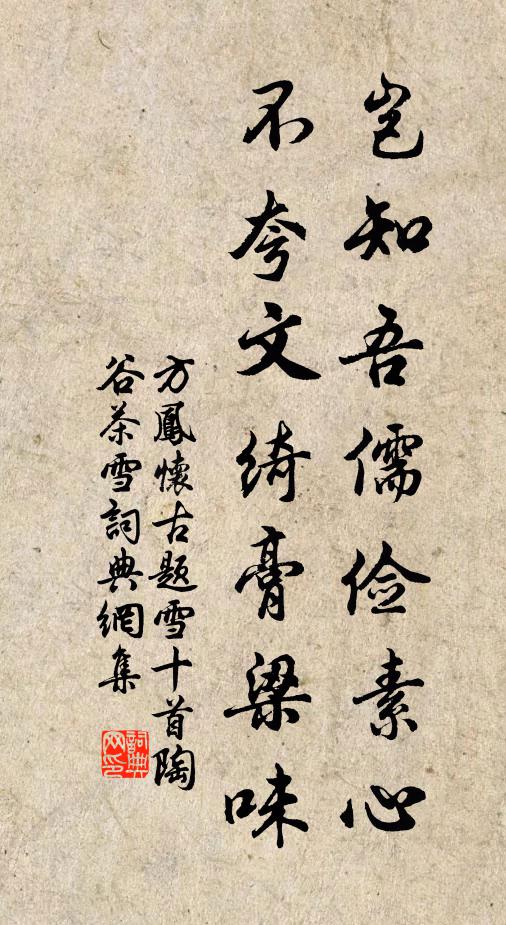 岂知吾儒俭素心
不夸文绮膏粱味
方鳳懷古题雪十首陶
谷茶雪詞典網集
詞典网印